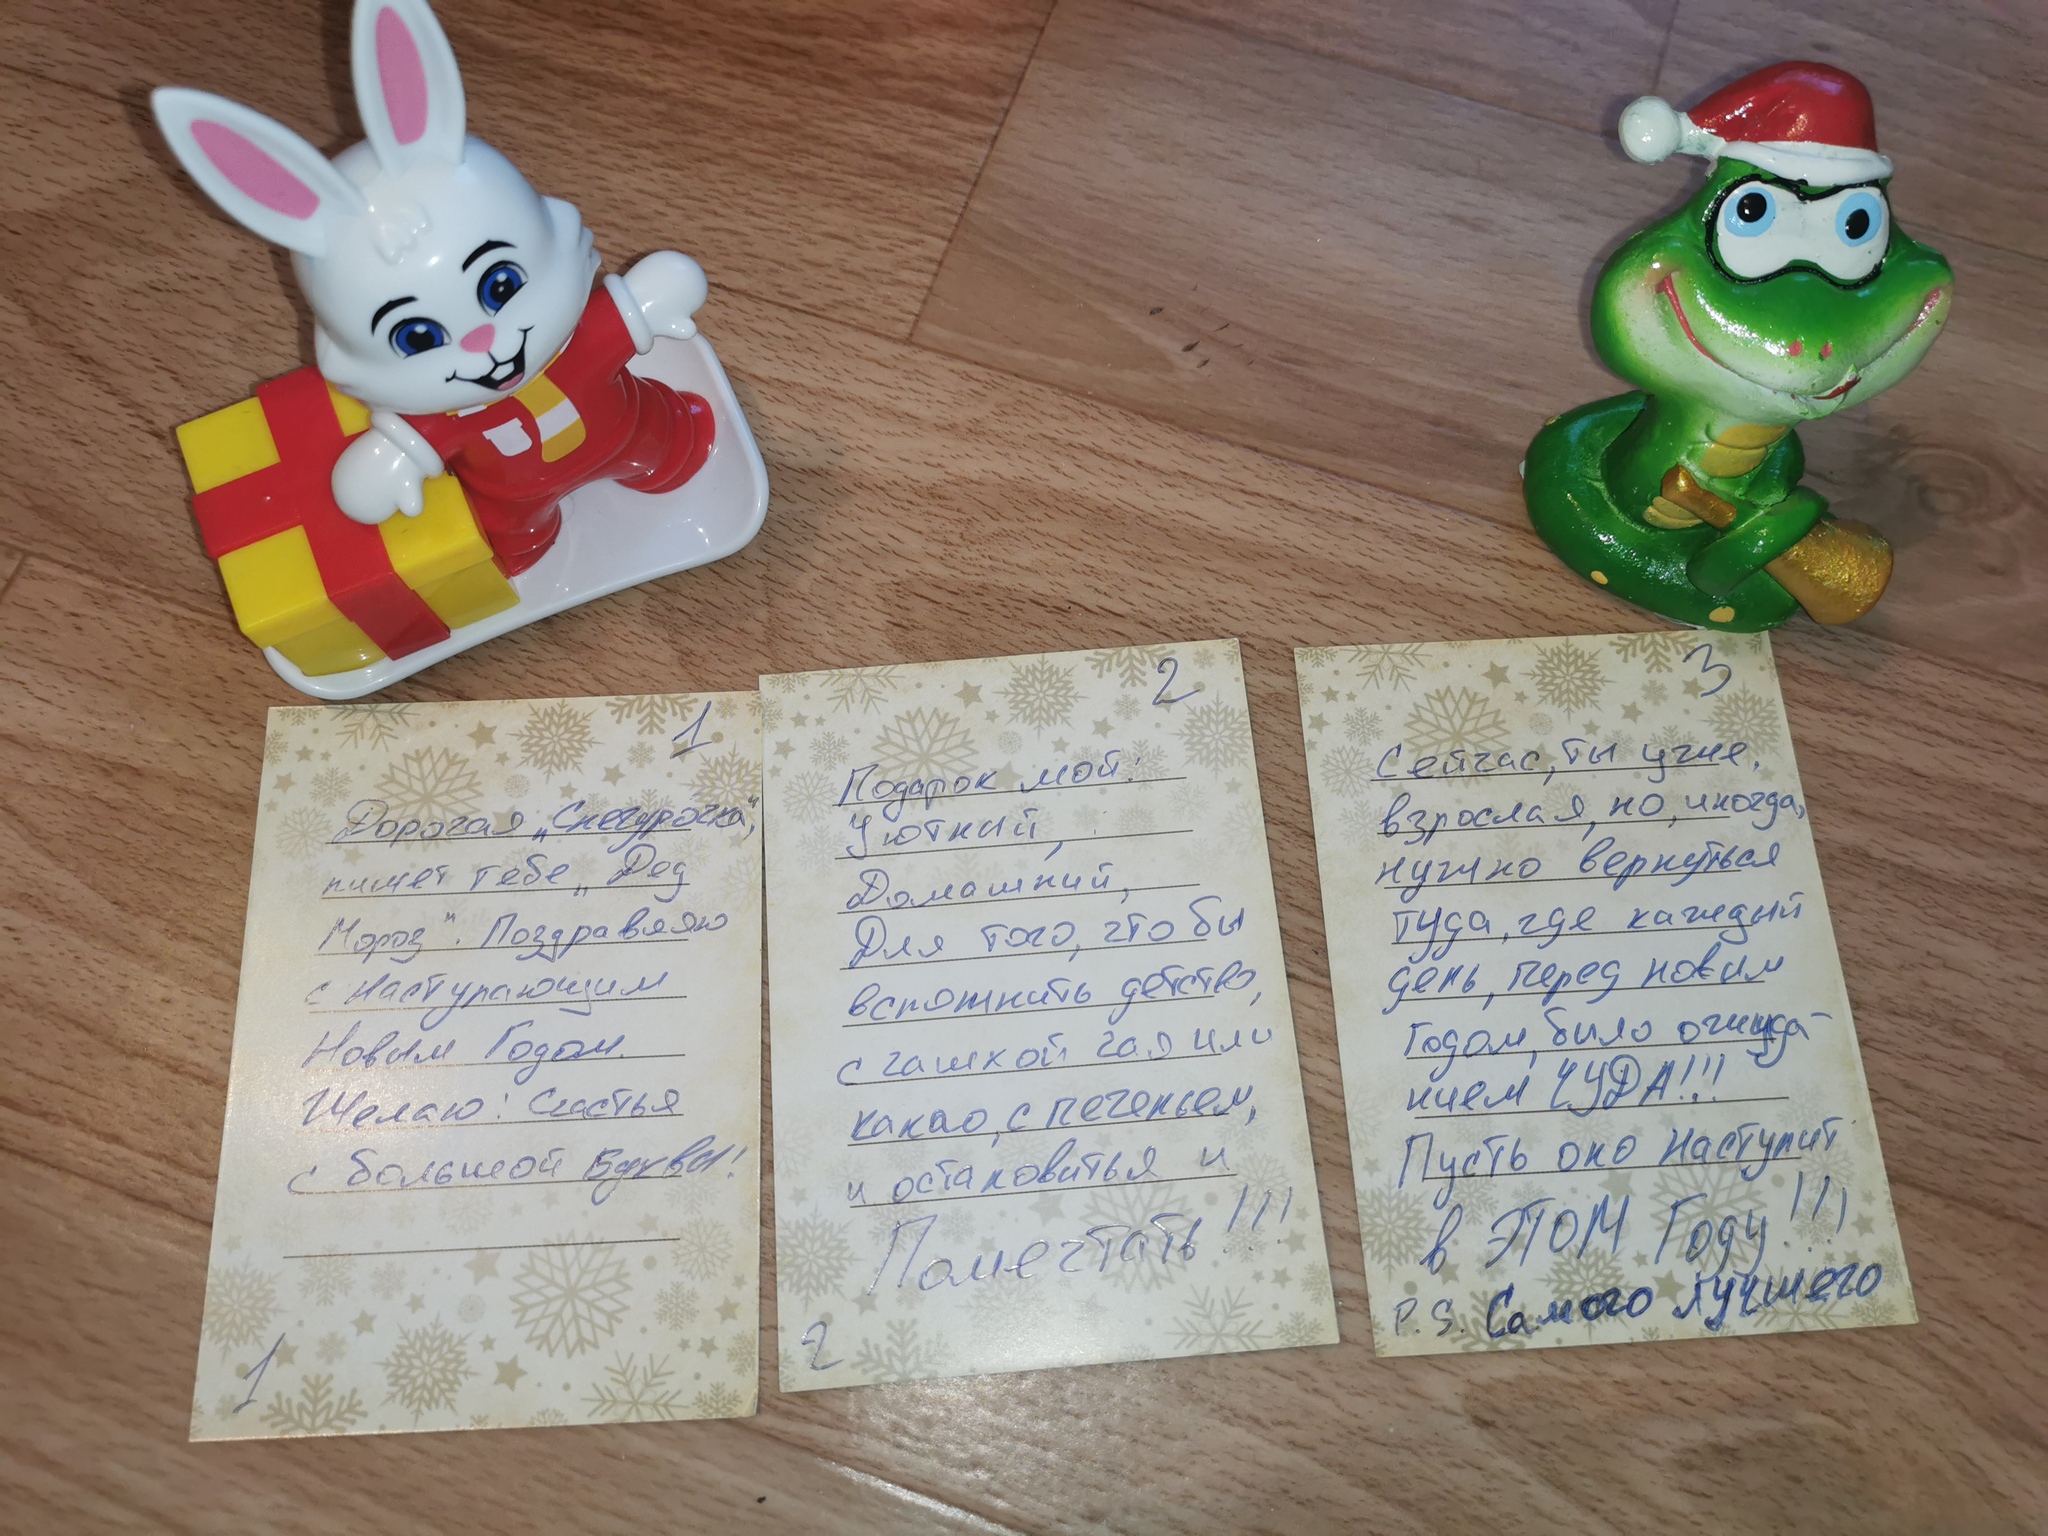 1
Дорогая „Снегурочка",
пишет тебе „Дед
Мороз". Поздравляю
с наступающим
Новым Годом.
Желаю: Счастья
с большой Буквы!
1
2
Подарок мой:
Уютный,
Домашний,
Для того, что бы
вспомнить детство,
с чашкой чая или
какао, с печеньем,
и остановиться и
Помечтать!!!
2
3
Сейчас, ты уже,
взрослая, но, иногда,
нужно вернуться
туда, где каждый
день, перед новым
годом, было ожида-
нием ЧУДА!!!
Пусть оно наступит
в ЭТОМ Году!!!
P.S. Самого лучшего